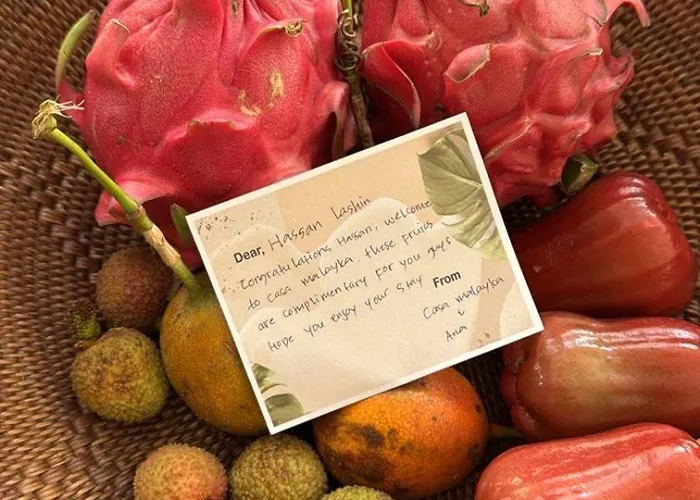 Dear, Hassan Lashin
Congratulations Hassan, welcome
to casa malayka, these fruits
are complimentary for you guys
Hope you enjoy your stay
From
Casa malayka
Ana